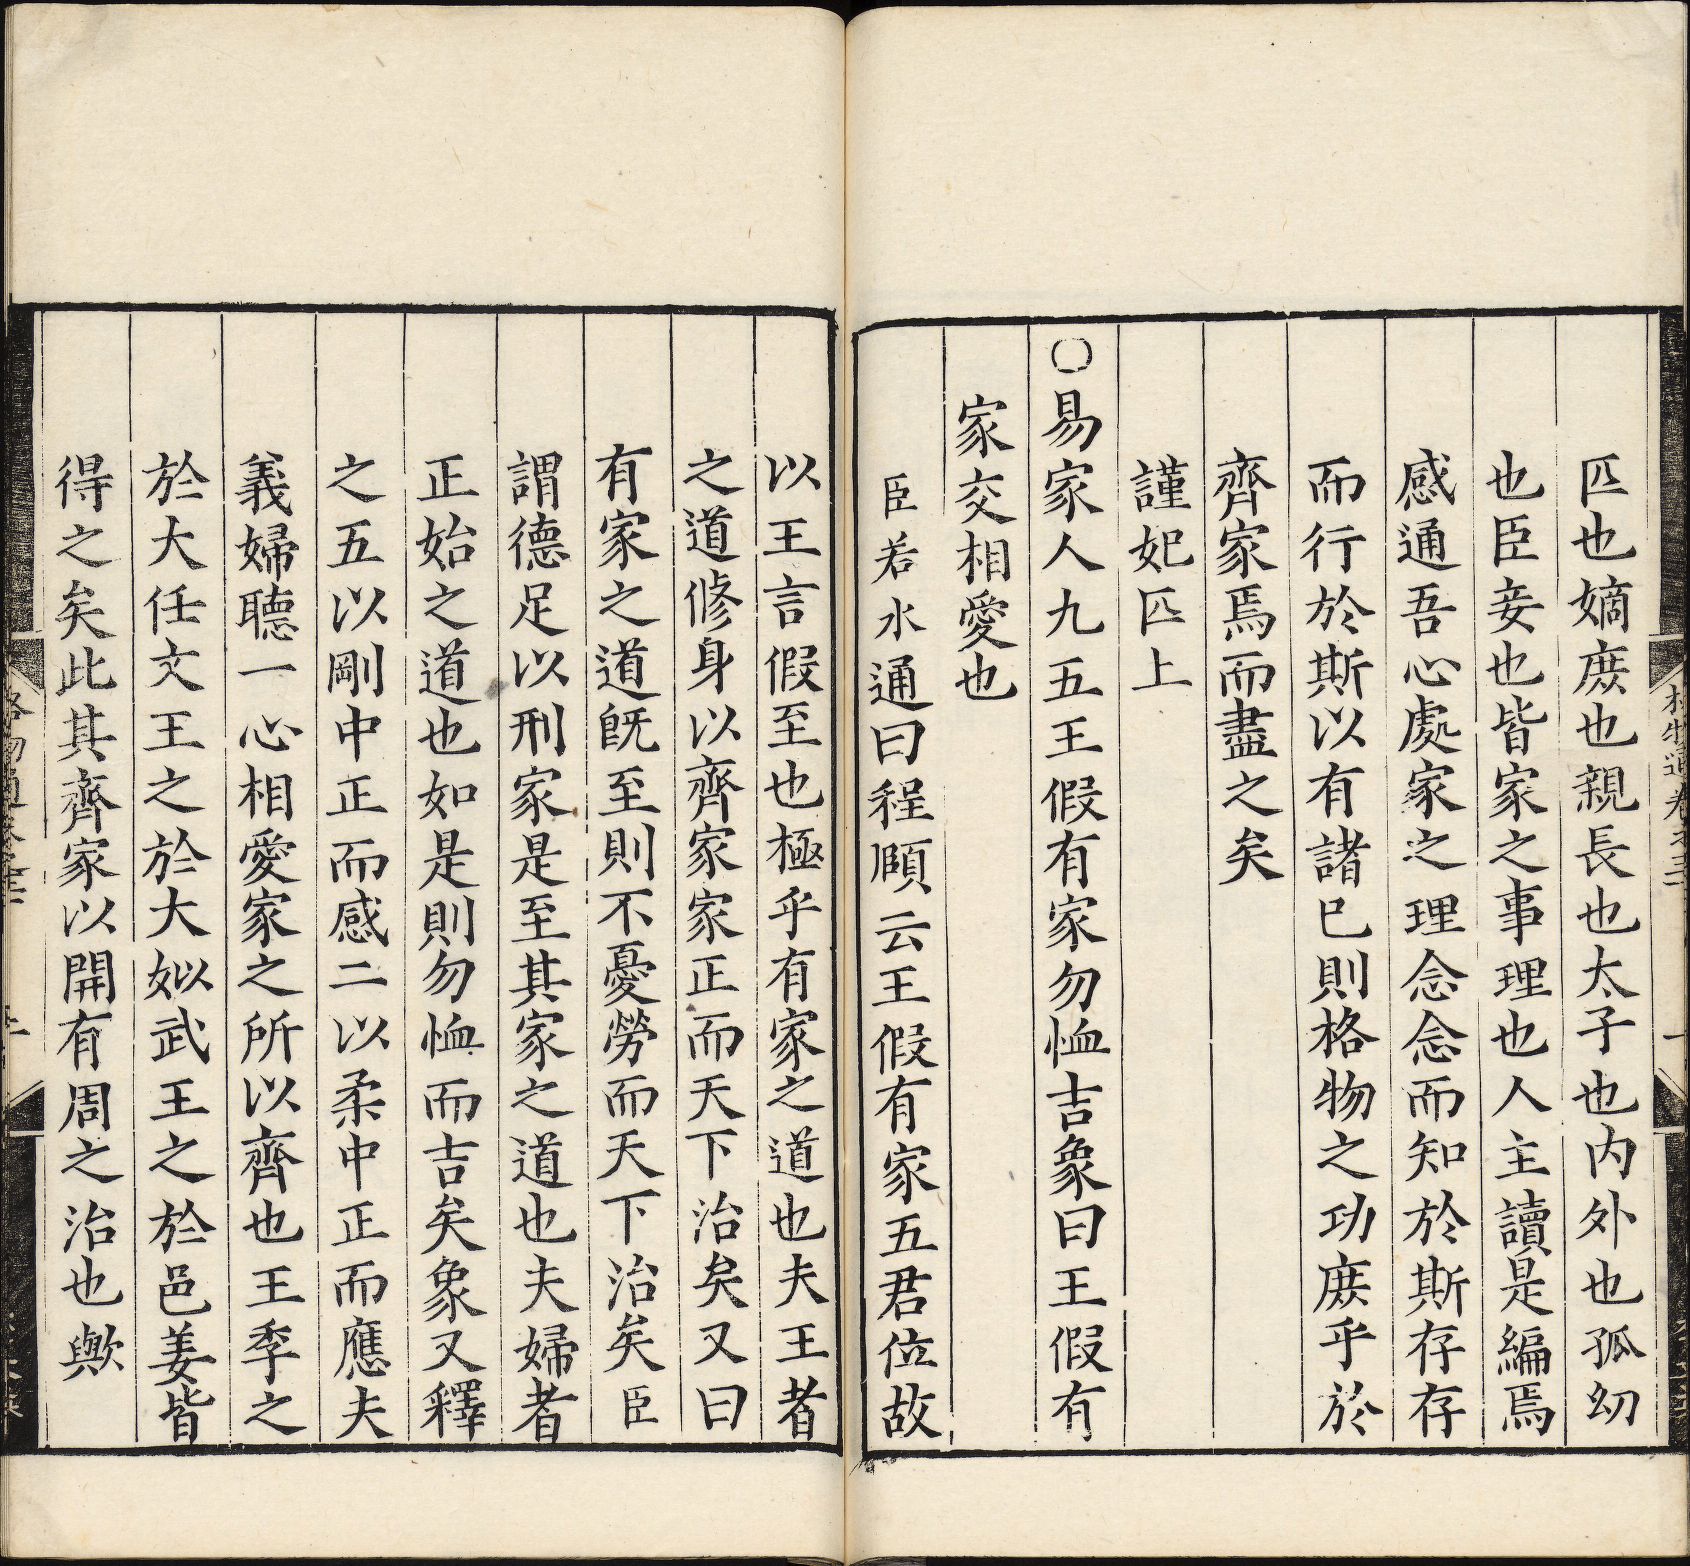 匹也嫡庻也親長也太子也内外也孤幼
也臣妾也皆家之事理也人主讀是編焉
感通吾心處家之理念念而知於斯存存
而行於斯以有諸已則格物之功庻乎於
齊家焉而盡之矣
謹妃匹上
○易家人九五王假有家勿恤吉象曰王假有
家交相愛也
臣若水通曰程頤云王假有家五君位故
以王言假至也極乎有家之道也夫王者
之道修身以齊家家正而天下治矣又曰
有家之道旣至則不憂勞而天下治矣臣
謂德足以刑家是至其家之道也夫婦者
正始之道也如是則勿恤而吉矣象又釋
之五以剛中正而感二以柔中正而應夫
義婦聽一心相愛家之所以齊也王季之
於大任文王之於大姒武王之於邑姜皆
得之矣此其齊家以開有周之治也歟